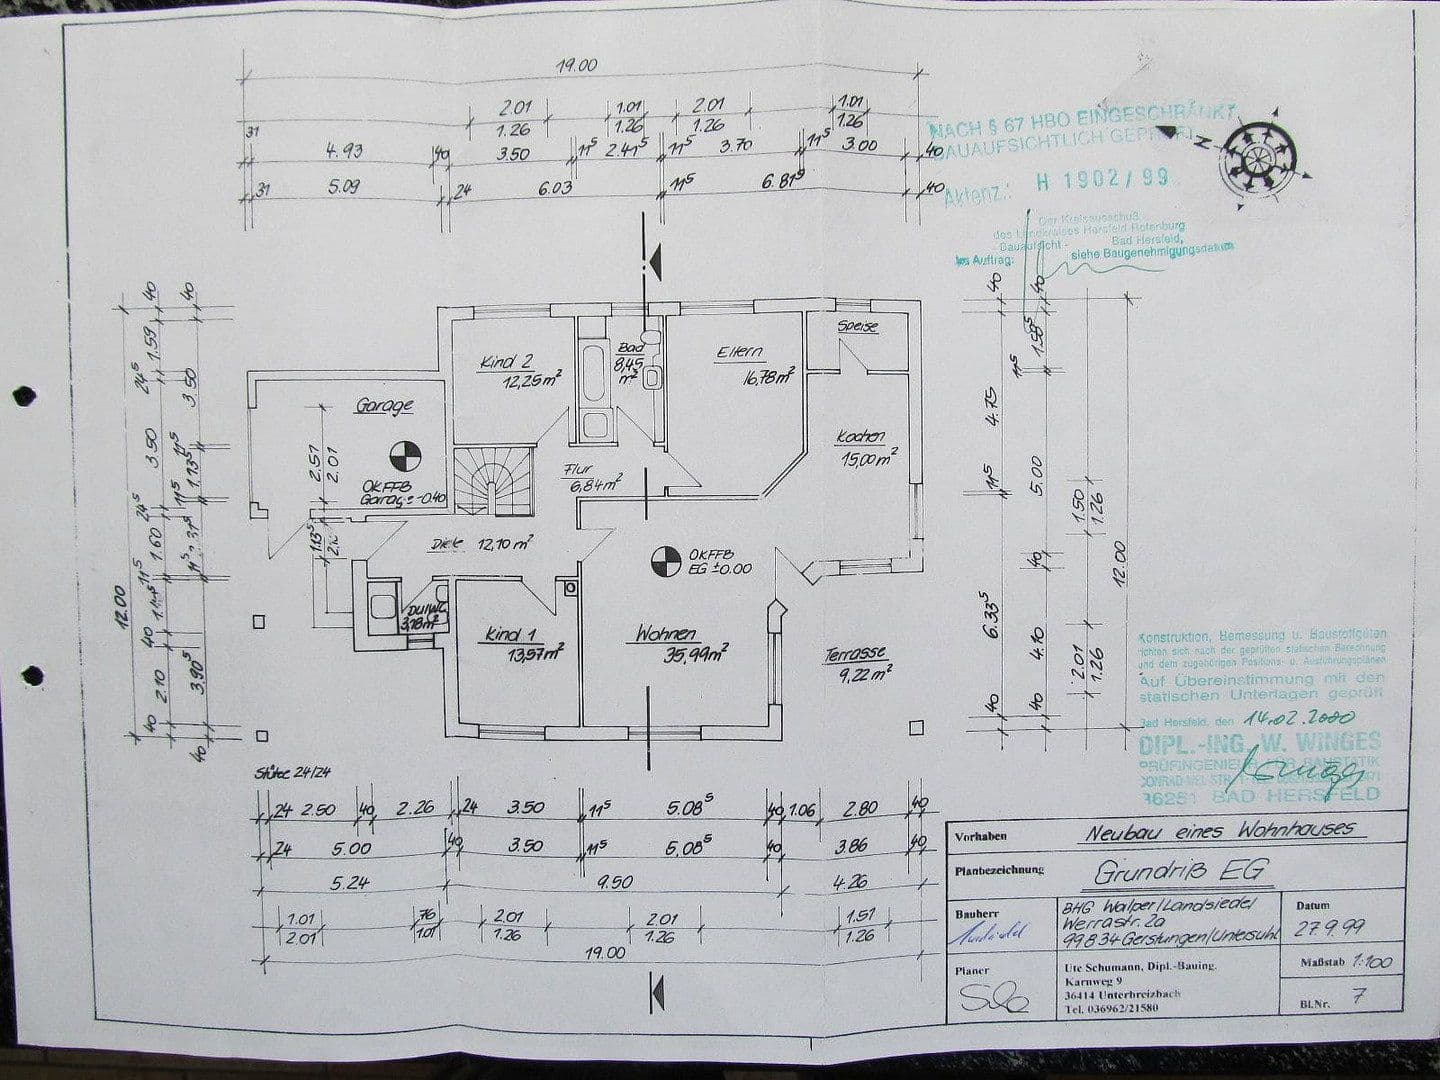 19.00
2.01 1.01 2.01 1.01
1.26 1.26 1.26 1.26
31 4.93 40 3.50 11⁵ 2.41⁵ 11⁵ 3.70 11⁵ 3.00 40
31 5.09 24 6.03 11⁵ 6.81⁵ 40
NACH § 67 HBO EINGESCHRÄNKT
BAUAUFSICHTLICH GEPRÜFT
Aktenz.: H 1902/99
Der Kreisausschuß
des Landkreises Hersfeld-Rotenburg
- Bauaufsicht - Bad Hersfeld,
Im Auftrag: siehe Baugenehmigungsdatum
N
Kind 2
12,25 m²
Bad
8,45
m²
Eltern
16,78 m²
Speise
Kochen
15,00 m²
Garage
OKFFB
Garage -0.40
2.57
2.01
Flur
6,84 m²
Diele 12,10 m²
OKFFB
EG ±0.00
DU/WC
3,18 m²
Kind 1
13,57 m²
Wohnen
35,99 m²
Terrasse
9,22 m²
1.13⁵
Stütze 24/24
12.00
40 2.10 40 11⁵ 1.60 24⁵ 3.50 24⁵ 1.59 40
40 3.90⁵ 11⁵ 11⁵ 1.13⁵ 11⁵ 3.50 40
40 6.33⁵ 11⁵ 4.75 40
40 4.10 40 5.00 11⁵ 1.58⁵ 40
2.01 1.50
1.26 1.26
12.00
24 2.50 40 2.26 24 3.50 11⁵ 5.08⁵ 40 1.06 2.80 40
24 5.00 40 3.50 11⁵ 5,08⁵ 40 3.86 40
5.24 9.50 4.26
1.01 76 2.01 2.01 1.51
2.01 1.01 1.26 1.26 1.26
19.00
Konstruktion, Bemessung u. Baustoffgüten
richten sich nach der geprüften statischen Berechnung
und dem zugehörigen Positions- u. Ausführungsplänen
Auf Übereinstimmung mit den
statischen Unterlagen geprüft
Bad Hersfeld, den 14.02.2000
DIPL.-ING. W. WINGES
PRÜFINGENIEUR FÜR BAUSTATIK
36251 BAD HERSFELD
Vorhaben Neubau eines Wohnhauses
Planbezeichnung Grundriß EG
Bauherr
BHG Walper/Landsiedel
Werrastr. 2a
99834 Gerstungen/Untersuhl
Datum
27.9.99
Planer
Ute Schumann, Dipl.-Bauing.
Karnweg 9
36414 Unterbreizbach
Tel. 036962/21580
Maßstab 1:100
Bl.Nr. 7